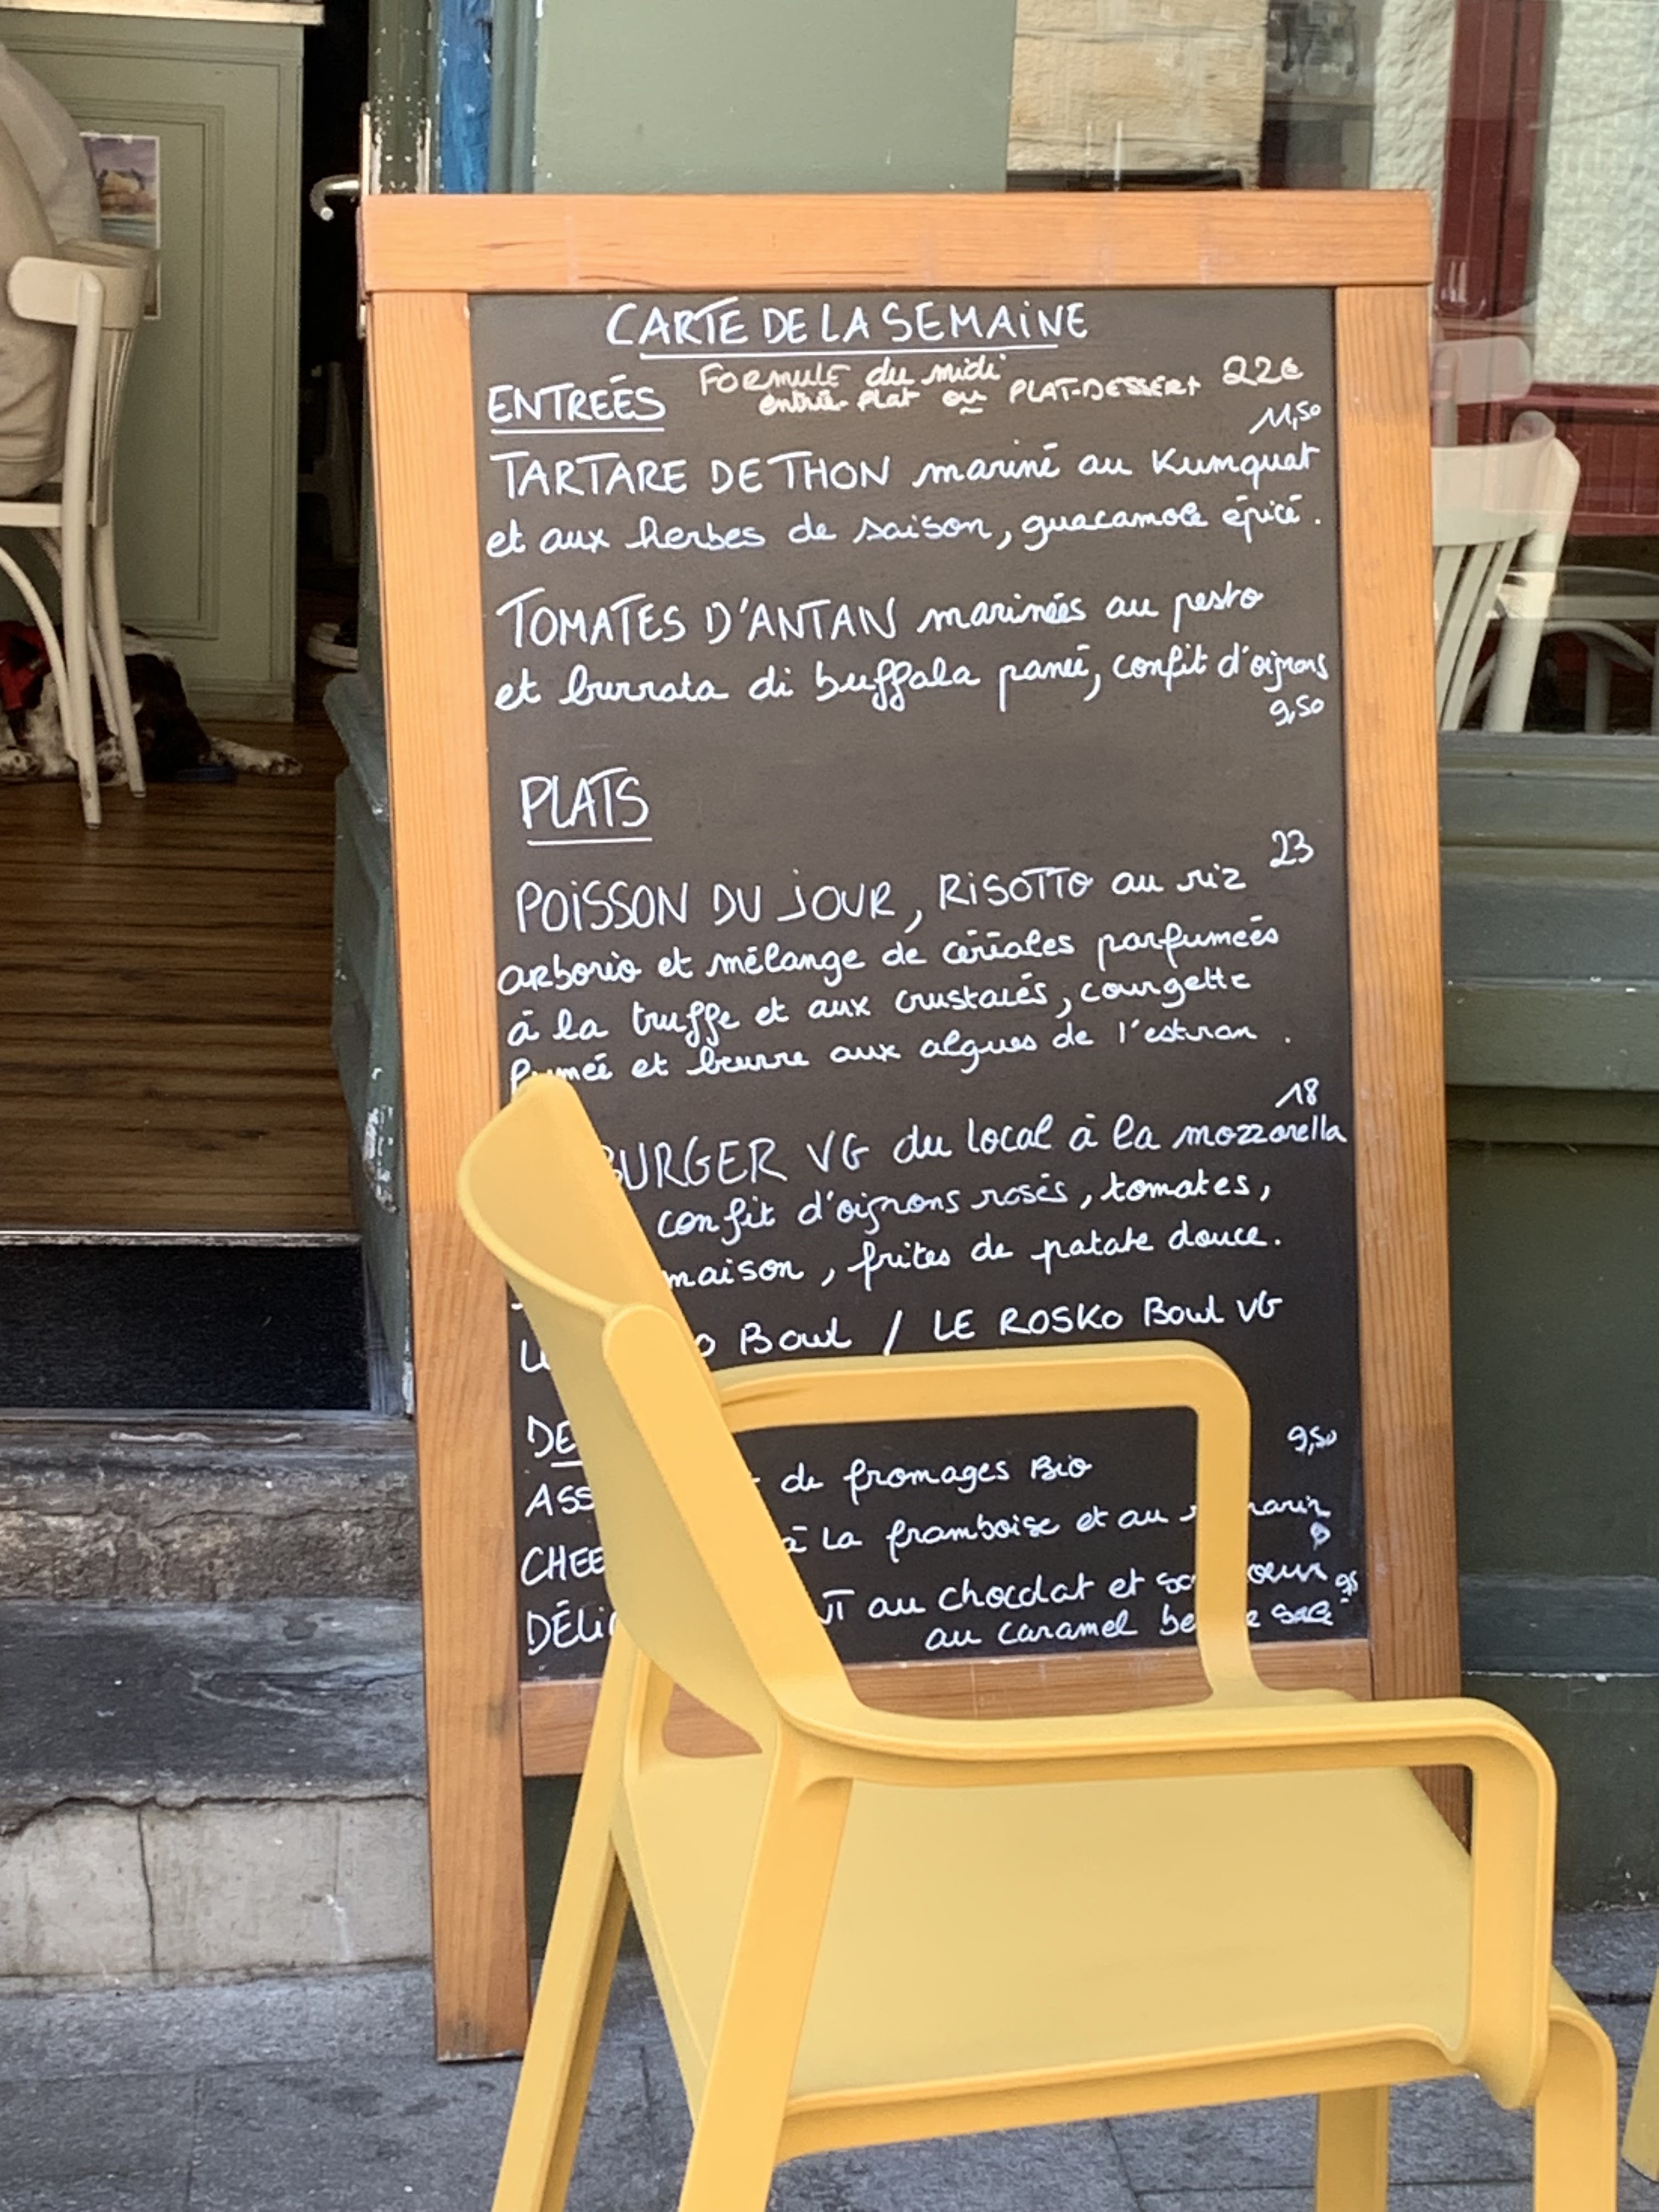 CARTE DE LA SEMAINE
FORMULE du midi 22€
entrée-Plat ou PLAT-DESSERT
ENTREÉS
11,50
TARTARE DE THON mariné au Kumquat
et aux herbes de saison, guacamole épicé.
TOMATES D'ANTAN marinées au pesto
et burrata di buffala panée, confit d'oignons
9,50
PLATS
23
POISSON DU JOUR, RISOTTO au riz
arborio et mélange de céréales parfumées
à la truffe et aux crustacés, courgette
fumée et beurre aux algues de l'estran.
18
BURGER VG du local à la mozzarella
confit d'oignons rosés, tomates,
maison, frites de patate douce.
Bowl / LE ROSKO Bowl VG
9,50
de fromages Bio
à la framboise et au
au chocolat et
au caramel